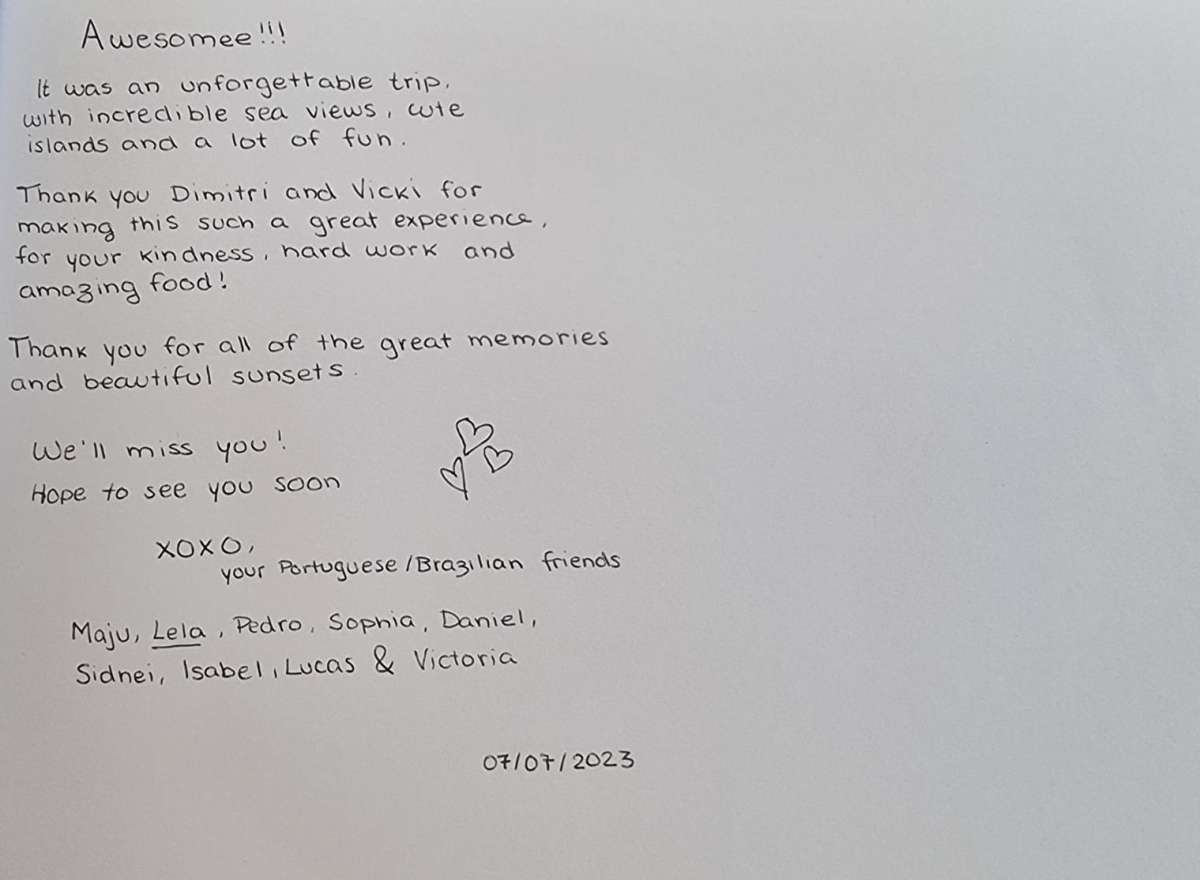 Awesomee!!!
It was an unforgettable trip,
with incredible sea views, cute
islands and a lot of fun.
Thank you Dimitri and Vicki for
making this such a great experience,
for your kindness, hard work and
amazing food!
Thank you for all of the great memories
and beautiful sunsets.
We'll miss you!
Hope to see you soon
XOXO,
your Portuguese/Brazilian friends
Maju, Lela, Pedro, Sophia, Daniel,
Sidnei, Isabel, Lucas & Victoria
07/07/2023